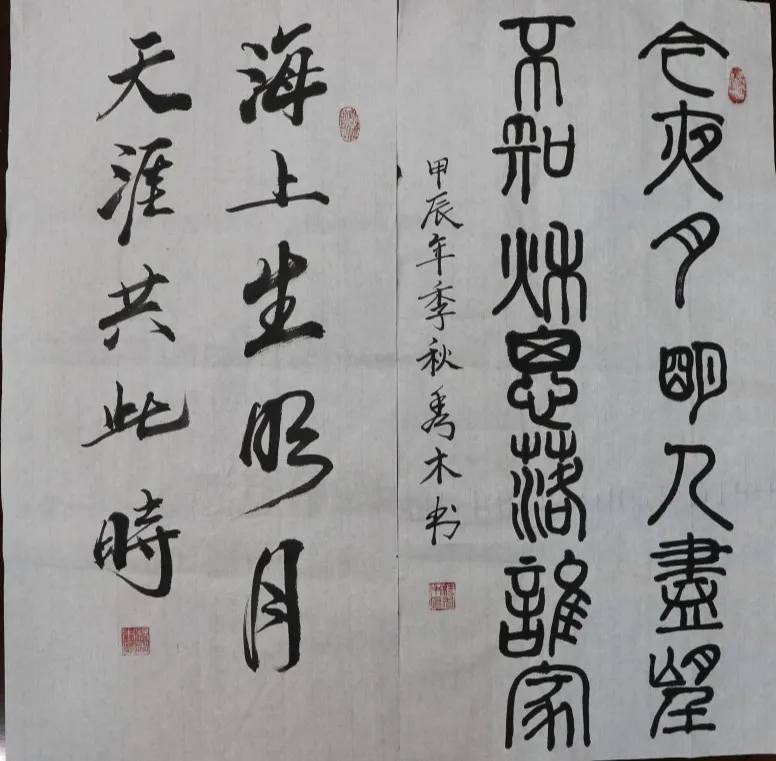 今夜月明人盡望
不知秋思落誰家
甲辰年季秋秀木书
海上生明月
天涯共此時